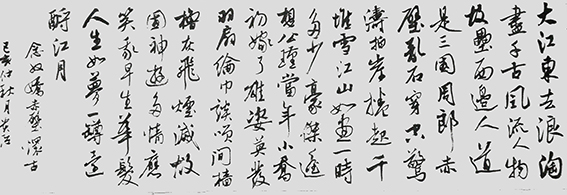 大江東去浪淘
盡千古風流人物
故壘西邊人道
是三國周郎赤
壁亂石穿空驚
濤拍岸捲起千
堆雪江山如畫一時
多少豪傑遙
想公瑾當年小喬
初嫁了雄姿英發
羽扇綸巾談笑間檣
櫓灰飛煙滅故
國神遊多情應
笑我早生華髮
人生如夢一樽還
酹江月
念奴嬌赤壁懷古
己亥仲秋月